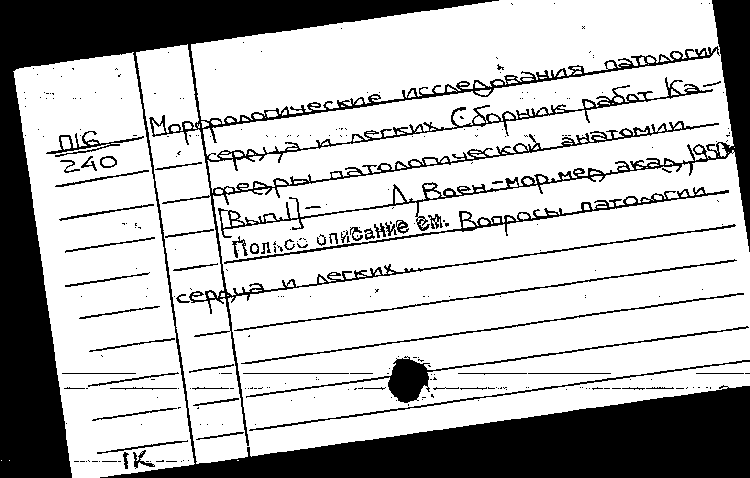 Морфологические исследования патологии
П16
240
сердца и легких. Сборник работ Ка-
федры патологической анатомии.
[Вып.1] - Л, Воен.-мор.мед.акад, 1950
Полное описание см. Вопросы патологии
сердца и легких...
1К